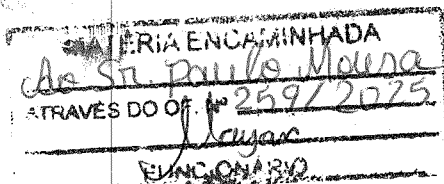 MATÉRIA ENCAMINHADA
Ao Sr. Paulo Moura
ATRAVÉS DO OF. Nº 259/2025
FUNCIONÁRIO